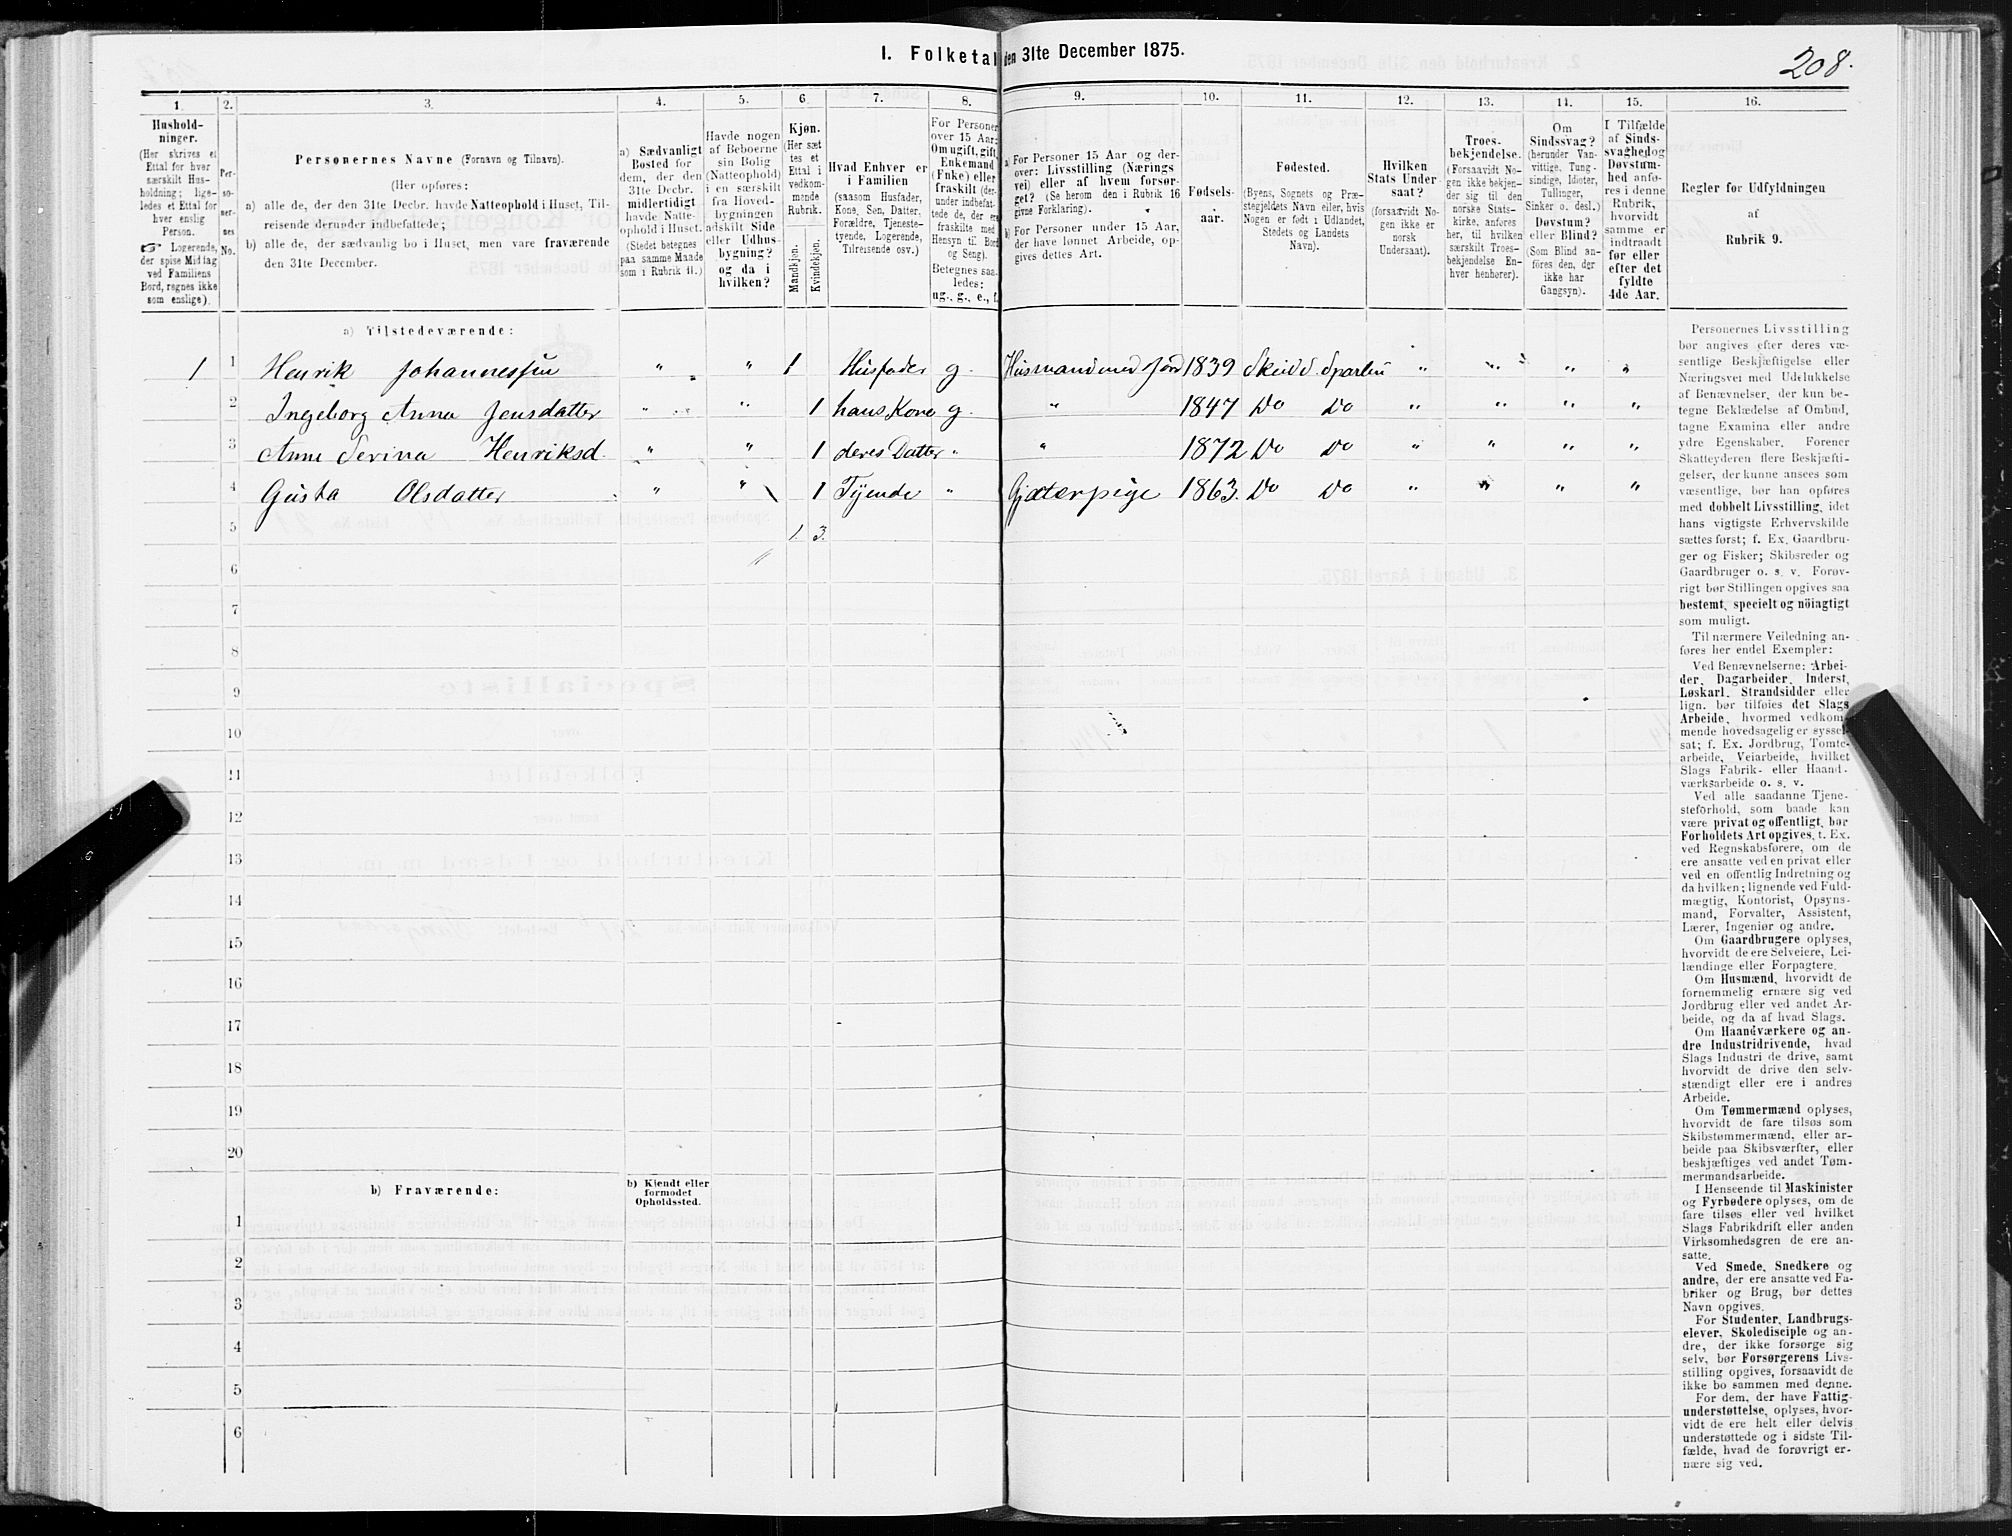 I. Folketal den 31te December 1875.
208.
1. 2. 3. 4. 5. 6. 7. 8. 9. 10. 11. 12. 13. 14. 15. 16.
Husholdninger.
(Her skrives et
Ettal for hver
særskilt Husholdning;
ligeledes et Ettal for
hver enslig
Person.
☞ Logerende,
der spise Middag
ved Familiens
Bord, regnes ikke
som enslige).
Personernes No.
Personernes Navne (Fornavn og Tilnavn).
(Her opføres:
a) alle de, der den 31te Decbr. havde Natteophold i Huset, Tilreisende derunder indbefattede;
b) alle de, der sædvanlig bo i Huset, men vare fraværende
den 31te December.
a) Sædvanligt
Bosted for
dem, der den
31te Decbr.
midlertidigt
havde Natteophold i Huset.
(Stedet betegnes
paa samme Maade
som i Rubrik 11.)
Havde nogen
af Beboerne
sin Bolig
(Natteophold)
i en særskilt
fra Hovedbygningen
adskilt Side
eller Udhusbygning?
og da i
hvilken?
Kjøn.
(Her sættes et
Ettal i
vedkommende
Rubrik.
Mandkjøn.
Kvindekjøn.
Hvad Enhver er
i Familien
(saasom Husfader,
Kone, Søn, Datter,
Forældre, Tjenestetyende, Logerende,
Tilreisende osv.)
For Personer
over 15 Aar:
Om ugift, gift,
Enkemand
(Enke) eller
fraskilt (derunder indbefattede de, der ere
fraskilte med
Hensyn til Bord
og Seng).
Betegnes saaledes:
ug., g., e., f.
a) For Personer 15 Aar og derover: Livsstilling (Næringsvei) eller af hvem forsørget? (Se herom den i Rubrik 16
givne Forklaring).
b) For Personer under 15 Aar,
der have lønnet Arbeide, opgives dettes Art.
Fødselsaar.
Fødested.
(Byens, Sognets og Præstegjeldets Navn eller, hvis
Nogen er født i Udlandet,
Stedets og Landets
Navn).
Hvilken
Stats Undersaat?
(forsaavidt Nogen ikke er
norsk
Undersaat).
Troesbekjendelse.
(Forsaavidt Nogen ikke bekjender sig til den
norske Statskirke, anføres
her, til hvilken
særskilt Troesbekjendelse Enhver henhører).
Om
Sindssvag?
(herunder Vanvittige, Tungsindige, Idioter,
Tullinger,
Sinker o. desl.)
Døvstum?
eller Blind?
(Som Blind anføres den, der
ikke har
Gangsyn).
I Tilfælde
af Sindssvaghed og
Døvstumhed anføres i denne
Rubrik,
hvorvidt
samme er
indtraadt
før eller
efter det
fyldte
4de Aar.
Regler for Udfyldningen
af
Rubrik 9.
a) Tilstedeværende:
1 1 Henrik Johannessen " " 1 Husfader g. Husmand med Jord 1839 Skeid S. Sparbu " " " "
2 Ingeborg Anna Jensdatter " " 1 hans Kone g. " 1847 Do Do " " " "
3 Anne Serina Henriksd. " " 1 deres Datter " " 1872 Do Do " " " "
4 Gusta Olsdatter " " 1 Tyende " Gjæterpige 1863. Do Do " " " "
5 1. 3.
6
7
8
9
10
11
12
13
14
15
16
17
18
19
20
b) Fraværende:
b) Kjendt eller
formodet
Opholdssted.
1
2
3
4
5
6
Personernes Livsstilling
bør angives efter deres væsentlige Beskjæftigelse eller
Næringsvei med Udelukkelse
af Benævnelser, der kun betegne Beklædelse af Ombud,
tagne Examina eller andre
ydre Egenskaber. Forener
Skatteyderen flere Beskjæftigelser, der kunne ansees som
væsentlige, bør han opføres
med dobbelt Livsstilling, idet
hans vigtigste Erhvervskilde
sættes først; f. Ex. Gaardbruger og Fisker; Skibsreder og
Gaardbruger o. s. v. Forøvrigt bør Stillingen opgives saa
bestemt, specielt og nöiagtigt
som muligt.
Til nærmere Veiledning anføres her endel Exempler:
Ved Benævnelserne: Arbeider, Dagarbeider, Inderst,
Løskarl, Strandsidder eller
lign. bør tilføies det Slags
Arbeide, hvormed vedkommende hovedsagelig er sysselsat; f. Ex. Jordbrug, Tomtearbeide, Veiarbeide, hvilket
Slags Fabrik- eller Haandværksarbeide o. s. v.
Ved alle saadanne Tjenesteforhold, som baade kan
være privat og offentligt, bør
Forholdets Art opgives, t. Ex.
ved Regnskabsførere, om de
ere ansatte ved en privat eller
ved en offentlig Indretning og
da hvilken; lignende ved Fuldmægtig, Kontorist, Opsynsmand, Forvalter, Assistent,
Lærer, Ingeniør og andre.
Om Gaardbrugere oplyses,
hvorvidt de ere Selveiere, Leilændinge eller Forpagtere.
Om Husmænd, hvorvidt de
fornemmelig ernære sig ved
Jordbrug eller ved andet Arbeide, og da af hvad Slags.
Om Haandværkere og andre Industridrivende, hvad
Slags Industri de drive, samt
hvorvidt de drive den selvstændigt eller ere i andres
Arbeide.
Om Tømmermænd oplyses,
hvorvidt de fare tilsøs som
Skibstømmermænd, eller arbeide paa Skibsværfter, eller
beskjæftiges ved andet Tømmermandsarbeide.
I Henseende til Maskinister
og Fyrbødere oplyses, om de
fare tilsøs eller ved hvilket
Slags Fabrikdrift eller anden
Virksomhedsgren de ere ansatte.
Ved Smede, Snedkere og
andre, der ere ansatte ved Fabriker og Brug, bør dettes
Navn opgives.
For Studenter, Landbrugselever, Skoledisciple og andre, der ikke forsørge sig
selv, bør Forsørgerens Livsstilling opgives, forsaavidt de
ikke bo sammen med denne.
For dem, der have Fattigunderstøttelse, oplyses, hvorvidt de ere helt eller delvis
understøttede og i sidste Tilfælde, hvad de forøvrigt ernære sig ved.